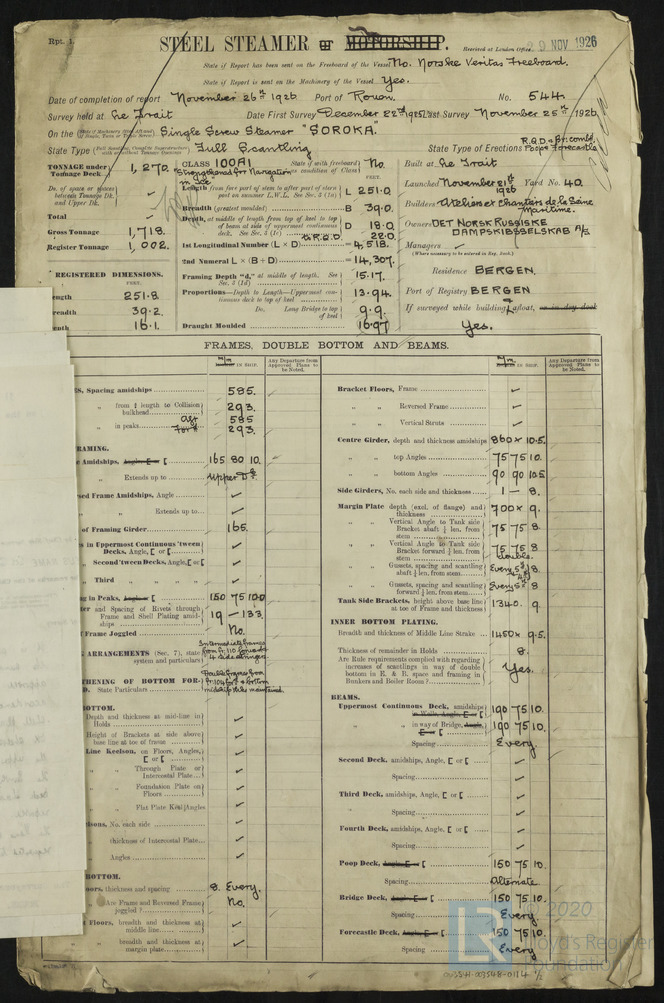 Rpt. 1.
STEEL STEAMER OR MOTORSHIP.
Received at London Office 29 NOV 1926
State if Report has been sent on the Freeboard of the Vessel No. Norske Veritas Freeboard.
State if Report is sent on the Machinery of the Vessel Yes.
Date of completion of report November 26th 1926 Port of Rouen. No. 544.
Survey held at Le Trait Date First Survey December 22nd 1925 Last Survey November 25th 1926
On the Single Screw Steamer "SOROKA."
State Type Full Scantling State Type of Erections R.Q.D & Br: comb. Poop Forecastle
TONNAGE under Tonnage Deck 1,270.
Do. of space or spaces between Tonnage Dk. and Upper Dk.
Total
Gross Tonnage 1,718.
Register Tonnage 1,002.
REGISTERED DIMENSIONS.
FEET.
ength 251.8
readth 39.2
epth 16.1
CLASS 100A1 State if with freeboard as condition of Class No.
Strengthened for Navigation in Ice
FEET.
Length from fore part of stem to after part of stern post on summer L.W.L. See Sec. 3 (1a) L 251.0
Breadth (greatest moulded) B 39.0
Depth, at middle of length from top of keel to top of beam at side of uppermost continuous deck. See Sec. 3 (1c) D 18.0
to R.Q.D 22.0
1st Longitudinal Number (L × D) = 4,518.
2nd Numeral L × (B + D) = 14,307.
Framing Depth "d," at middle of length. See Sec. 3 (1d) 15.17.
Proportions—Depth to Length—Uppermost continuous deck to top of keel 13.94.
Do. Long Bridge to top of keel 9.9.
Draught Moulded 16.97
Built at Le Trait
Launched November 21st 1926 Yard No. 40.
Builders Ateliers et Chantiers de la Seine Maritime.
Owners DET NORSK RUSSISKE DAMPSKIBSSELSKAB A/S
Managers
(Where necessary to be entered in Reg. Book.)
Residence BERGEN.
Port of Registry BERGEN
If surveyed while building, afloat, or in dry dock
Yes.
FRAMES, DOUBLE BOTTOM AND BEAMS.
m/m IN SHIP.
Any Departure from Approved Plans to be Noted.
m/m IN SHIP.
Any Departure from Approved Plans to be Noted.
ES, Spacing amidships 585.
" from ⅕ length to Collision bulkhead 293.
" in peaks Aft 585
Fore 293.
RAMING.
e Amidships, Angle, E or [ 165 80 10.
" Extends up to Upper Dk
sed Frame Amidships, Angle
" Extends up to
of Framing Girder 165.
s in Uppermost Continuous 'tween Decks, Angle, [ or [
Second 'tween Decks, Angle, [ or [
Third " " " "
ng in Peaks, Angle or [ 150 75 10.0
ter and Spacing of Rivets through Frame and Shell Plating amidships 19 — 133.
f Frame Joggled No.
ARRANGEMENTS (Sec. 7), state system and particulars
Intermediate frames
THENING OF BOTTOM FORD. State Particulars
Double frames from
OTTOM.
Depth and thickness at mid-line in Holds
Height of Brackets at side above base line at toe of frame
Line Keelson, on Floors, Angles, [ or [
" Through Plate or Intercostal Plate
" Foundation Plate on Floors
" Flat Plate Keel Angles
lsons, No. each side
thickness of Intercostal Plate
Angles
BOTTOM.
oors, thickness and spacing 8. Every.
Are Frame and Reversed Frame joggled? No.
Floors, breadth and thickness at middle line
breadth and thickness at margin plate
Bracket Floors, Frame
" " Reversed Frame
" " Vertical Struts
Centre Girder, depth and thickness amidships 860 × 10.5.
" " top Angles 75 75 10.
" " bottom Angles 90 90 10.5
Side Girders, No. each side and thickness 1 — 8.
Margin Plate depth (excl. of flange) and thickness 700 × 9.
" " Vertical Angle to Tank side Bracket abaft ¼ len. from stem 75 75 8.
" " Vertical Angle to Tank side Bracket forward ¼ len. from stem 75 75 8 double.
" " Gussets, spacing and scantling abaft ¼ len. from stem
" " Gussets, spacing and scantling forward ¼ len. from stem
Tank Side Brackets, height above base line at toe of Frame and thickness 1340. 9.
INNER BOTTOM PLATING.
Breadth and thickness of Middle Line Strake 1450 × 9.5.
Thickness of remainder in Holds 8.
Are Rule requirements complied with regarding increases of scantlings in way of double bottom in E. & B. space and framing in Bunkers and Boiler Room? Yes.
BEAMS.
Uppermost Continuous Deck, amidships in Wells, Angle, E or [ 190 75 10.
" " in way of Bridge, Angle, E or [ 190 75 10.
Spacing Every
Second Deck, amidships, Angle, [ or [
Spacing
Third Deck, amidships, Angle, [ or [
Spacing
Fourth Deck, amidships, Angle, [ or [
Spacing
Poop Deck, Angle, E or [ 150 75 10.
Spacing Alternate
Bridge Deck, Angle, E or [ 150 75 10.
Spacing Every
Forecastle Deck, Angle, E or [ 150 75 10.
Spacing Every
© 2020
Lloyd's Register
Foundation
003541-003548-0114 ½